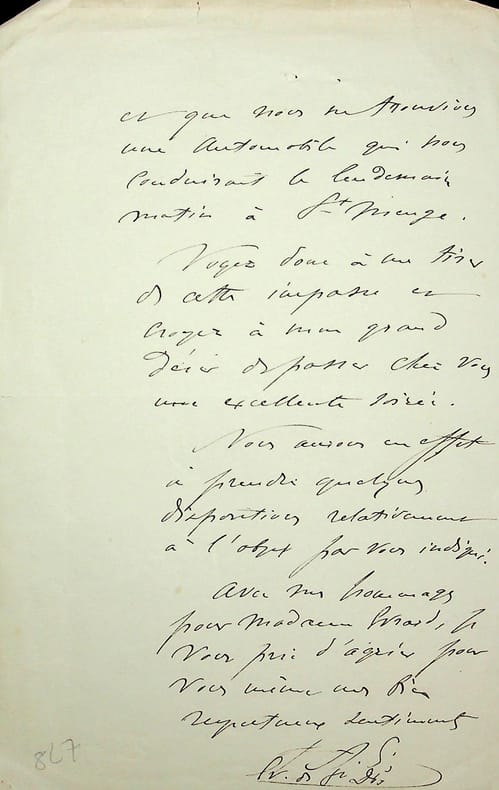 et que nous ne trouvions
une automobile qui nous
conduisant le lendemain
matin à St
Voyez donc à me tirer
de cette impasse et
croyez à mon grand
désir de passer chez vous
une excellente soirée.
Nous aurons en effet
à prendre quelques
dispositions relativement
à l'objet par vous indiqué.
Avec mes hommages
pour Madame Evrard, je
vous prie d'agréer pour
vous même mes bien
respectueux sentiments
847